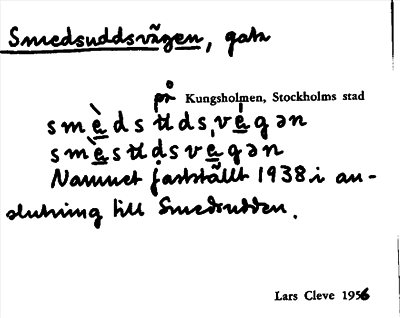 Smedsuddsvägen, gata
på Kungsholmen, Stockholms stad
smè̱dsʉds,vé̱gən
smè̱sʉdsvẽ̱gən
Namnet fastställt 1938 i an-
slutning till Smedsudden.
Lars Cleve 1956